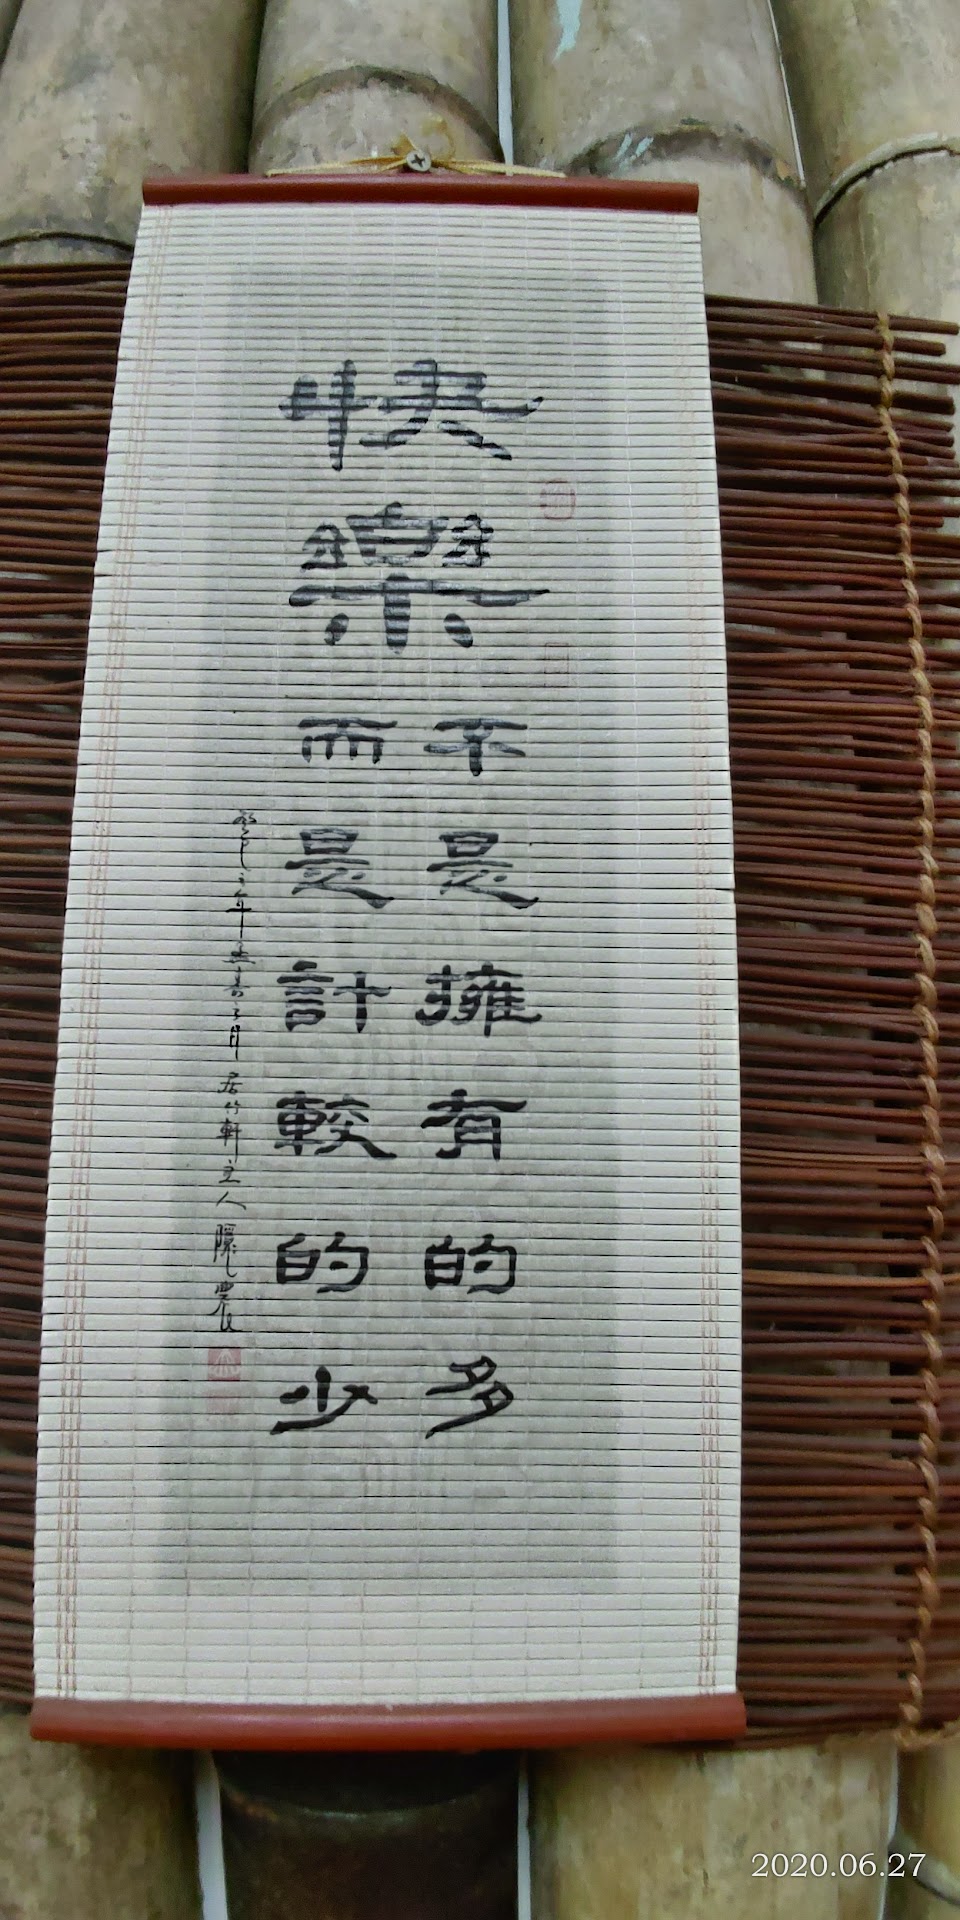 快樂
不是擁有的多
而是計較的少
居竹軒主人 隱農
2020.06.27